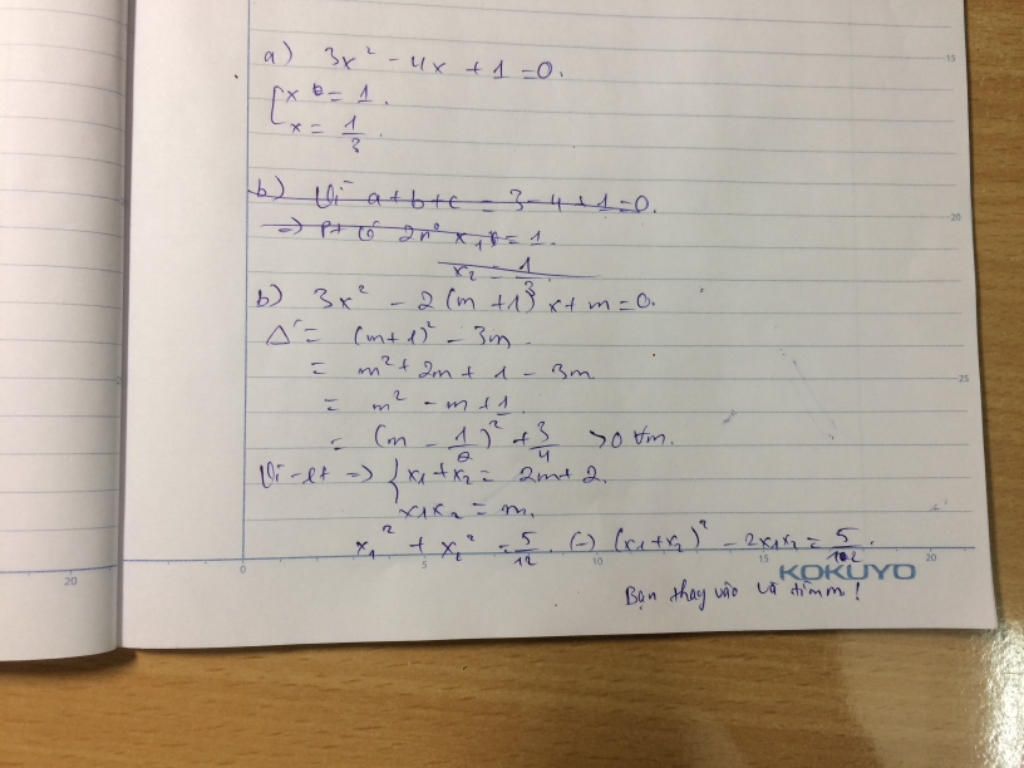 a) 3x² - 4x + 1 = 0.
[ x = 1.
x = 1/3.
b) Vì a + b + c = 3 - 4 + 1 = 0.
=> Pt có 2 n⁰ x₁ = 1.
x₂ = 1/3.
b) 3x² - 2(m + 1)x + m = 0.
Δ' = (m + 1)² - 3m.
= m² + 2m + 1 - 3m
= m² - m + 1.
= (m - 1/2)² + 3/4 > 0 ∀m.
Vi-et => { x₁ + x₂ = 2m + 2.
x₁x₂ = m.
x₁² + x₂² = 5/12. (-) (x₁ + x₂)² - 2x₁x₂ = 5/12.
Bạn thay vào và tìm m!
KOKUYO
15
20
25
20
0
5
10
15
20